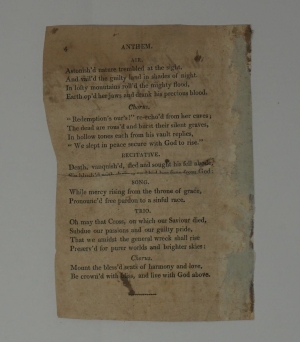 ANTHEM.
AIR.
Astonish'd nature trembled at the sight,
And veil'd the guilty land in shades of night.
In lofty mountains roll'd the mighty flood,
Earth op'd her jaws, and drank his precious blood.
Chorus.
"Redemption's our's!" re-echo'd from her caves;
The dead are rous'd and burst their silent graves,
In hollow tones each from his vault replies,
"We slept in peace secure with God to rise."
RECITATIVE.
Death, vanquish'd, died and sought his fell abode
SONG.
While mercy rising from the throne of grace,
Pronounc'd free pardon to a sinful race.
TRIO.
Oh may that Cross, on which our Saviour died,
Subdue our passions and our guilty pride,
That we amidst the general wreck shall rise
Preserv'd for purer worlds and brighter skies:
Chorus.
Mount the bless'd seats of harmony and love,
Be crown'd with bliss, and live with God above.